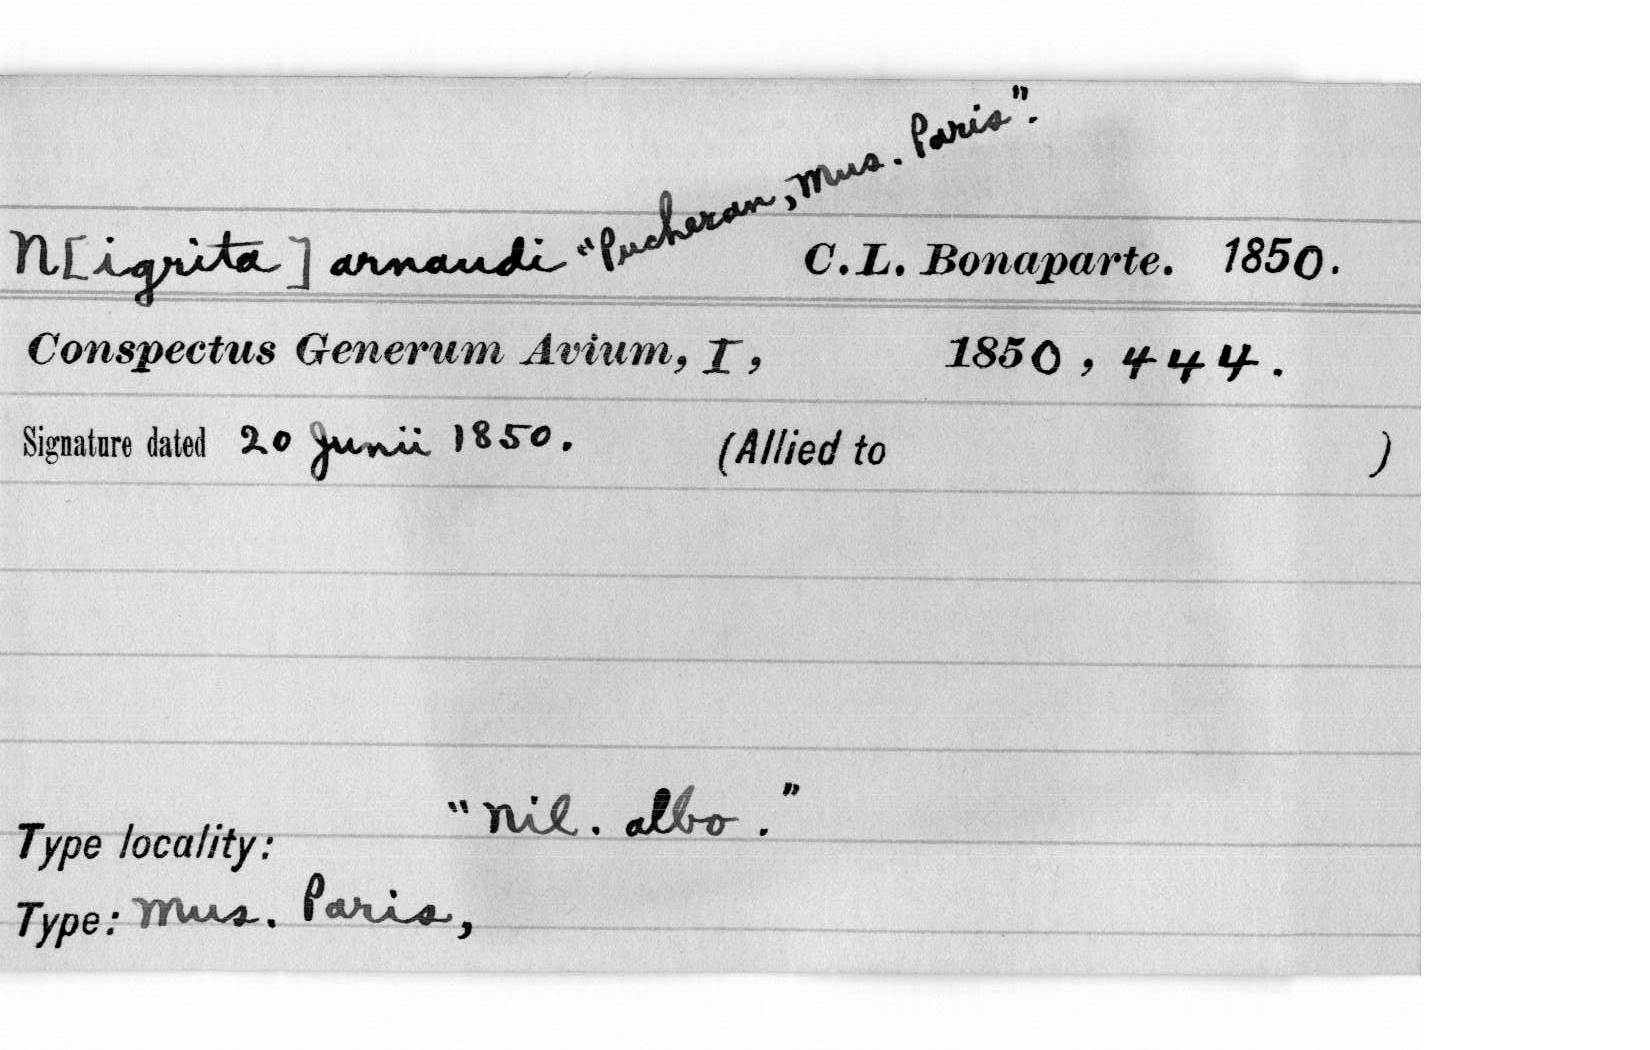 N[igrita] arnaudi "Pucheran, Mus. Paris". C.L. Bonaparte. 1850.
Conspectus Generum Avium, I, 1850, 444.
Signature dated 20 Junii 1850. (Allied to )
Type locality: "Nil. albo."
Type: Mus. Paris,